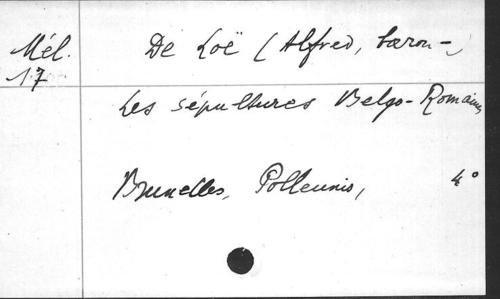 Mél.
17
De Loë (Alfred, baron-)
Les sépultures Belgo-Romaines
Bruxelles, Polleunis,
4°